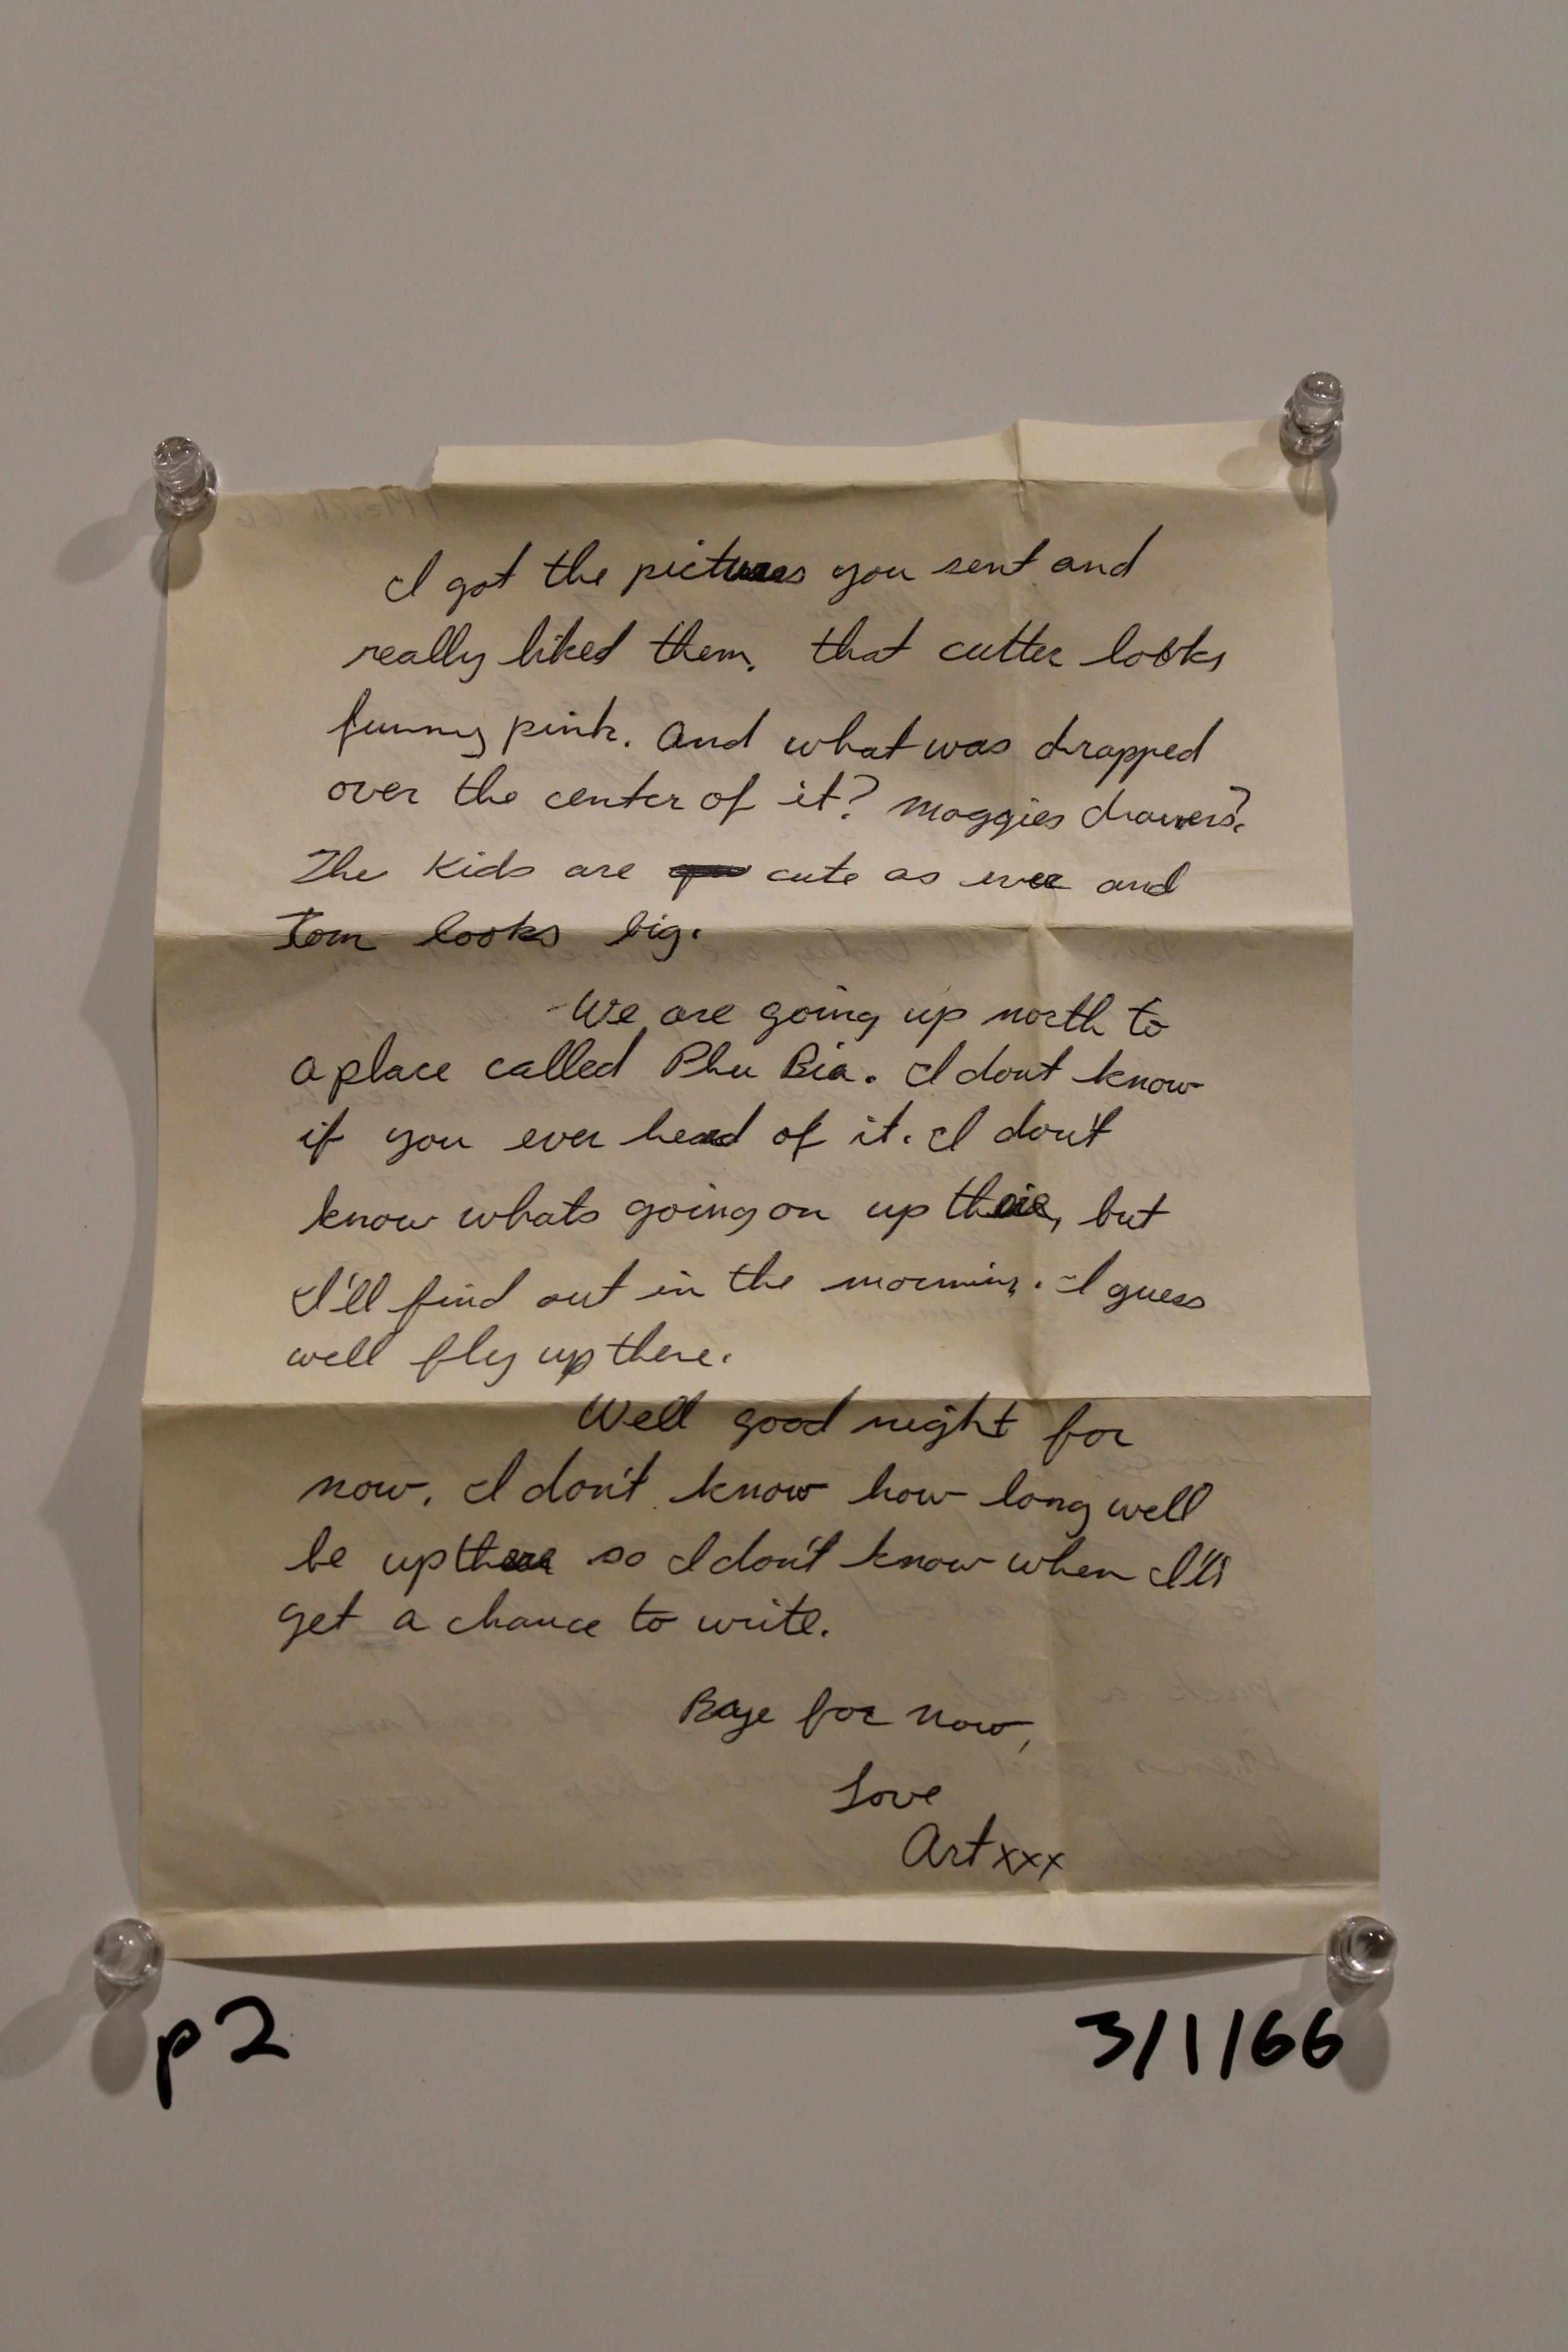 I got the pictures you sent and
really liked them. that cutter looks
funny pink. And what was drapped
over the center of it? Maggies drawers?
The Kids are cute as ever and
Tom looks big.
We are going up north to
a place called Phu Bia. I dont know
if you ever heard of it. I don't
know whats going on up there, but
I'll find out in the morning. I guess
well fly up there.
Well good night for
now. I don't know how long well
be up there so I don't know when I'll
get a chance to write.
Baye for now,
Love
Art xxx
p2
3/1/66